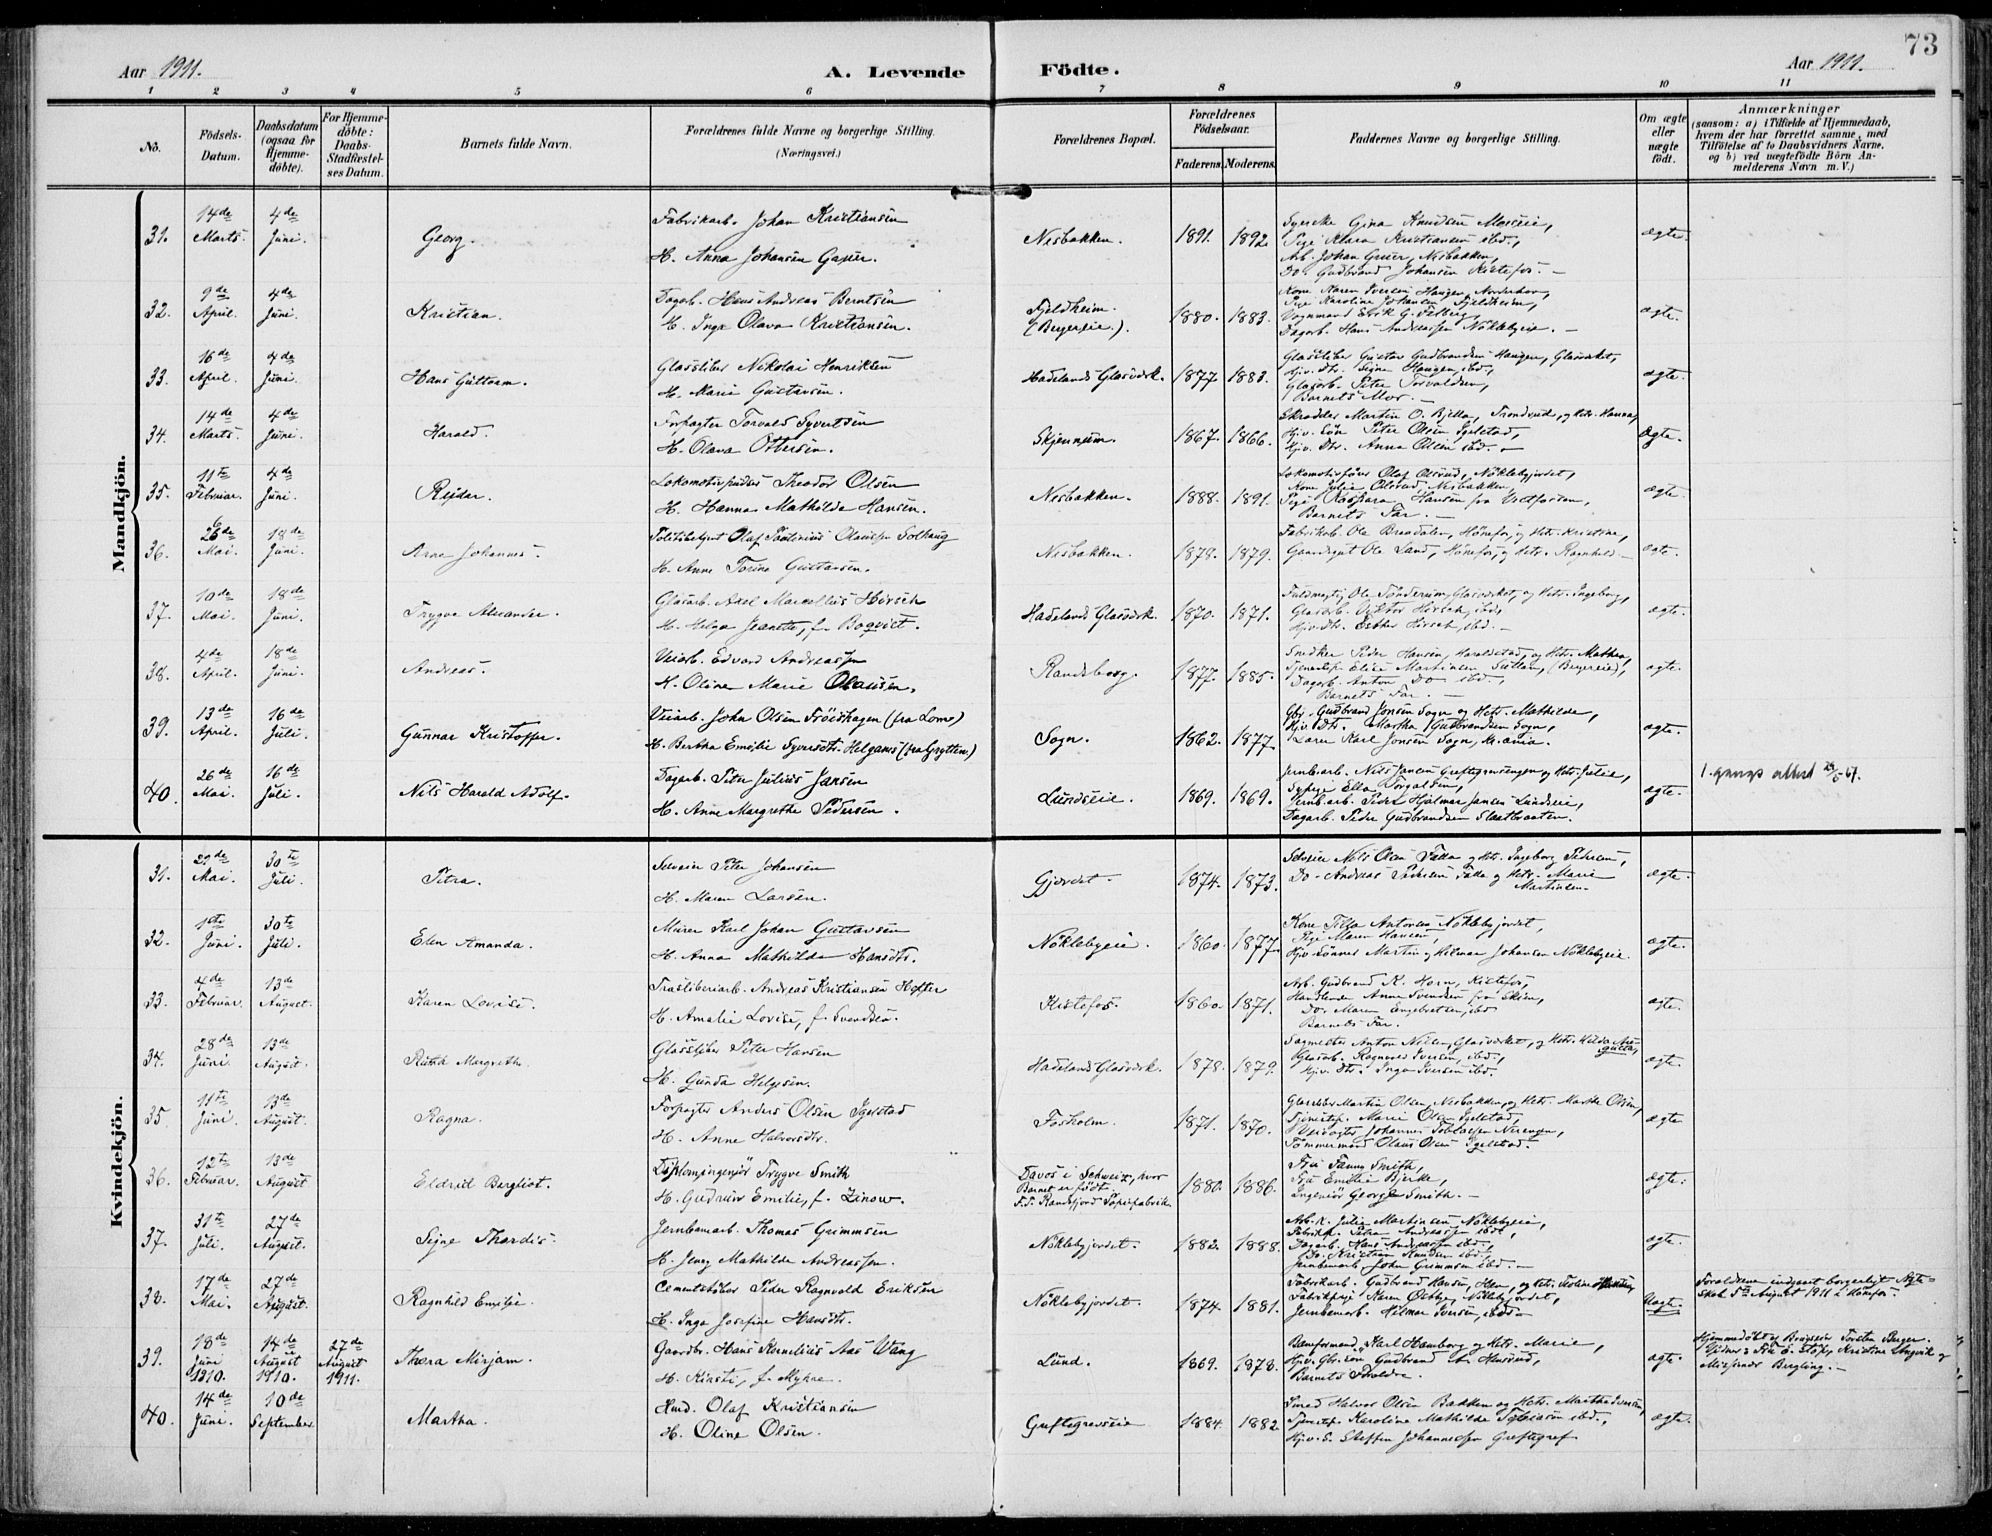 73
Aar 1911.
A. Levende Födte.
Aar 1911.
1 2 3 4 5 6 7 8 9 10 11
No.
Födsels-
Datum.
Daabsdatum
(ogsaa for
Hjemme-
døbte).
For Hjemme-
døbte:
Daabs-
Stadfæstel-
ses Datum.
Barnets fulde Navn.
Forældrenes fulde Navne og borgerlige Stilling.
(Næringsvei.)
Forældrenes Bopæl.
Forældrenes
Födselsaar.
Faderens.
Moderens.
Faddernes Navne og borgerlige Stilling.
Om ægte
eller
uægte
födt.
Anmærkninger
(saasom: a) i Tilfælde af Hjemmedaab,
hvem der har forrettet samme, med
Tilföielse af to Daabsvidners Navne,
og b) ved uægtefödte Börn An-
melderens Navn m. V.)
Mandkjön.
31. 14de Marts. 4de Juni. Georg.
Fabrikarb. Johan Kristiansen
H. Anna Johansen
Nesbakken. 1891. 1892.
Syerske Gina Knudsen
Pige Klara Kristiansen ibd.,
Arb. Johan Nesbakken,
Do. Gudbrand Johansen Kistefos. -
ægte.
32. 9de April. 4de Juni. Kristian.
Dagarb. Hans Andreas Berntsen
H. Inga Olava Kristiansen.
Fjeldheim
(Bergereie.). 1880. 1883.
Kone Karen Iversen Haugen,
Pige Karoline Johansen Fjeldheim,
Dagarb. Hans Andreassen Nöklebyeie. -
ægte.
33. 16de April. 4de Juni. Hans Guttorm.
Glassliber Nikolai Henriksen
H. Marie Gustavsen.
Hadelands Glasværk. 1877 1883.
Glassliber Gustav Gudbrandsen Haugen, Glasværket,
Hjv. Dtr. Signe Haugen, ibd.,
Glasarb. Peter Torvaldsen,
Barnets Mor. -
ægte.
34. 14de Marts. 4de Juni. Harald.
Forpagter Torvald Syvertsen
H. Olava Ottersen.
Skjennum. 1867. 1866.
Skrædder Martin O. Bjella, Trondrud, og Hstr. Hanna,
Hjv. Søn Peter Olsen Igelstad,
Hjv. Dtr. Anna Olsen ibd. -
Ægte.
35. 11te Februar. 4de Juni. Rejdar.
Lokomotivpudser Theodor Olsen
H. Hanna Mathilde Hansen.
Nesbakken. 1888. 1891.
Lokomotivfører Olaf Olsrud, Nöklebyjordet,
Kone Julie Olstad, Nesbakken,
Pige Kaspara Hansen fra
Barnets Far. -
ægte.
36. 26de Mai. 18de Juni. Arne Johannes.
Politibetjent Olaf Paulinius Olausen Solhaug
H. Anne Torine Gustavsen.
Nesbakken. 1878. 1879.
Fabrikarb. Ole Bradalen, Hönefos, og Hstr. Kristine,
Gaardsgut Ole Land, Hönefos, og Hstr. Ragnhild -
ægte.
37. 10de Mai. 18de Juni. Trygve Alexander.
Glasarb. Axel Marcellius Hirsch
H. Helga Jeanette, f. Boqvist.
Hadelands Glasværk. 1870. 1871.
Fuldmægtig Ole Sönderum, Glasværket, og Hstr. Ingeborg,
Glasarb. Viktor Hirsch, ibd.,
Hjv. Dtr. Esther Hirsch, ibd. -
ægte.
38. 4de April. 18de Juni. Andreas.
Veiarb. Edvard Andreassen
H. Oline Marie Olausen.
Randsborg. 1877. 1885.
Snedker Peder Hansen, Haraldstad, og Hstr. Mathea,
Tjenestep. Elise Martinsen (Bergereie),
Dagarb. Anton Do ibd.,
Barnets Far. -
ægte.
39. 13de April. 16de Juli. Gunnar Kristoffer.
Veiarb. John Olsen Fröishagen (fra Lom)
H. Bertha Emelie Syversdtr. Helgaas (fra Grytten)
Sogn. 1862. 1877
Gbr. Gudbrand Jonsen Sogn og Hstr. Mathilde,
Hjv. Dtr. Martha Gudbrandsen Sogn,
Karl Jonsen Sogn, Kr.ania.
ægte.
40. 26de Mai. 16de Juli. Nils Harald Adolf.
Dagarb. Peter Julius Jansen
H. Anne Margrethe Pedersen.
Lundseie. 1869. 1869.
Jernb.arb. Nils Jansen Greftegrevsengen og Hstr. Julie,
Sypige Ella Torgalsen,
Jernb.arb. Peder Hjalmar Jansen Lundseie,
Dagarb. Peder Gudbrandsen Slaatbraaten.
ægte.
1. gangs attest 29/5 67.
Kvindekjön.
31. 29de Mai. 30te Juli. Petra.
Selveier Peter Johansen
H. Maren Larsen.
Gjærdet. 1874. 1873.
Selveier Nils Olsen Falla og Hstr. Ingeborg Pedersen,
Do. Andreas Pedersen Falla og Hstr. Marie
Martinsen.
ægte.
32. 1ste Juni. 30te Juli. Elen Amanda.
Murer Karl Johan Gustavsen
H. Anna Mathilde Hansdtr.
Nöklebyeie. 1860. 1877.
Kone Tilla Antonsen Nöklebyjordet,
Pige Maren Hansen,
Hjv. Sönner Martin og Hilmar Johansen Nöklebyeie.
ægte.
33. 4de Februar. 13de August. Karen Lovise.
Træsliberiarb. Andreas Kristiansen Hofter
H. Amalie Lovise, f. Svendsen.
Kistefos. 1860. 1871.
Arb. Gudbrand K. Horn, Kistefos,
Handlende Anne Svendsen fra Skien,
Do. Maren Engebretsen, ibd
Barnets Far.
ægte.
34. 28de Juni. 13de August. Ruth Margreth.
Glassliber Peter Hansen
H. Gunda Helgesen.
Hadelands Glasværk. 1878. 1879.
Sagmester Anton Nilsen, Glasværket, og Hstr. Hilda
Glasarb. Ragnvald Iversen, ibd.,
Hjv. Dtr. Inga Iversen ibd.
ægte.
35. 11te Juni. 13de August. Ragna.
Forpagter Anders Olsen Igelstad
H. Anne Halvorsdtr.
Fosholm. 1871. 1870.
Glassliber Martin Olsen, Nesbakken, og Hstr. Marthe Olsen,
Tjenestep. Marie Olsen Igelstad,
Veivogter Johannes Tobiassen Nerengen,
Tömmermand Olaus Olsen Igelstad.
ægte
36. 12te Februar. 13de August Eldrid Bergliot.
Diplomingeniør Trygve Smith
H. Gudrun Emilie, f. Zinow.
Davos i Schweiz, hvor
Barnet er født.
F.T. Randsfjord Papirfabrik. 1880. 1886.
Frü Fanny Smith,
Frü Emilie Bjerke,
Ingeniør George Smith. -
ægte.
37. 31te Juli. 27de August. Signe Thordis.
Jernbanearb. Thomas Grimmsen
H. Jenny Mathilde Andreassen.
Nöklebyjordet. 1882. 1888.
Arb. K. Julie Martinsen Nöklebyeie,
Fabrikp. Petra Andreassen ibd.,
Dagarb. Hans Andreassen ibd.,
Do. Kristian Knudsen ibd.,
Jernbanearb. John Grimmsen ibd. -
ægte.
38. 17de Mai. 27de August. Ragnhild Emilie.
Cementstøber Peder Ragnvald Eriksen
H. Inga Josefine Hansdtr.
Nöklebyjordet. 1874. 1881.
Fabrikarb. Gudbrand Hansen, Hen, og Hstr.
Fabrikpige Karen Östby, Nöklebyjordet,
Jernbanearb. Hilmar Iversen, ibd. -
Uægte.
Forældrene indgaaet borgerligt Ægte-
skab 5te August 1911 i Hönefos.
39. 18de Juni 1910. 14de August 1910. 27de August 1911. Thora Mirjam.
Gaardbr. Hans Kornelius Aas Vang
H. Kirsti, f. Myhre.
Lund. 1869. 1878.
Baneformand Karl Hamborg og Hstr. Marie,
Hjv. Gbr. søn Gudbrand
Barnets Forældre.
ægte.
Hjemmedöbt af Torsten Berger.
Vidner: Frk. E. Kristine og
Misjonær Bergling. -
40. 14de Juni. 10de September. Martha.
Hmd. Olaf Kristiansen
H. Oline Olsen.
Greftegrevseie 1884. 1882
Smed Halvor Olsen Bakken og Hstr. Marthe Iversen,
Tjenestep. Karoline Mathilde Tobiasen ibd.,
Hjv. S. Steffen Johannessen Greftegref
ægte.